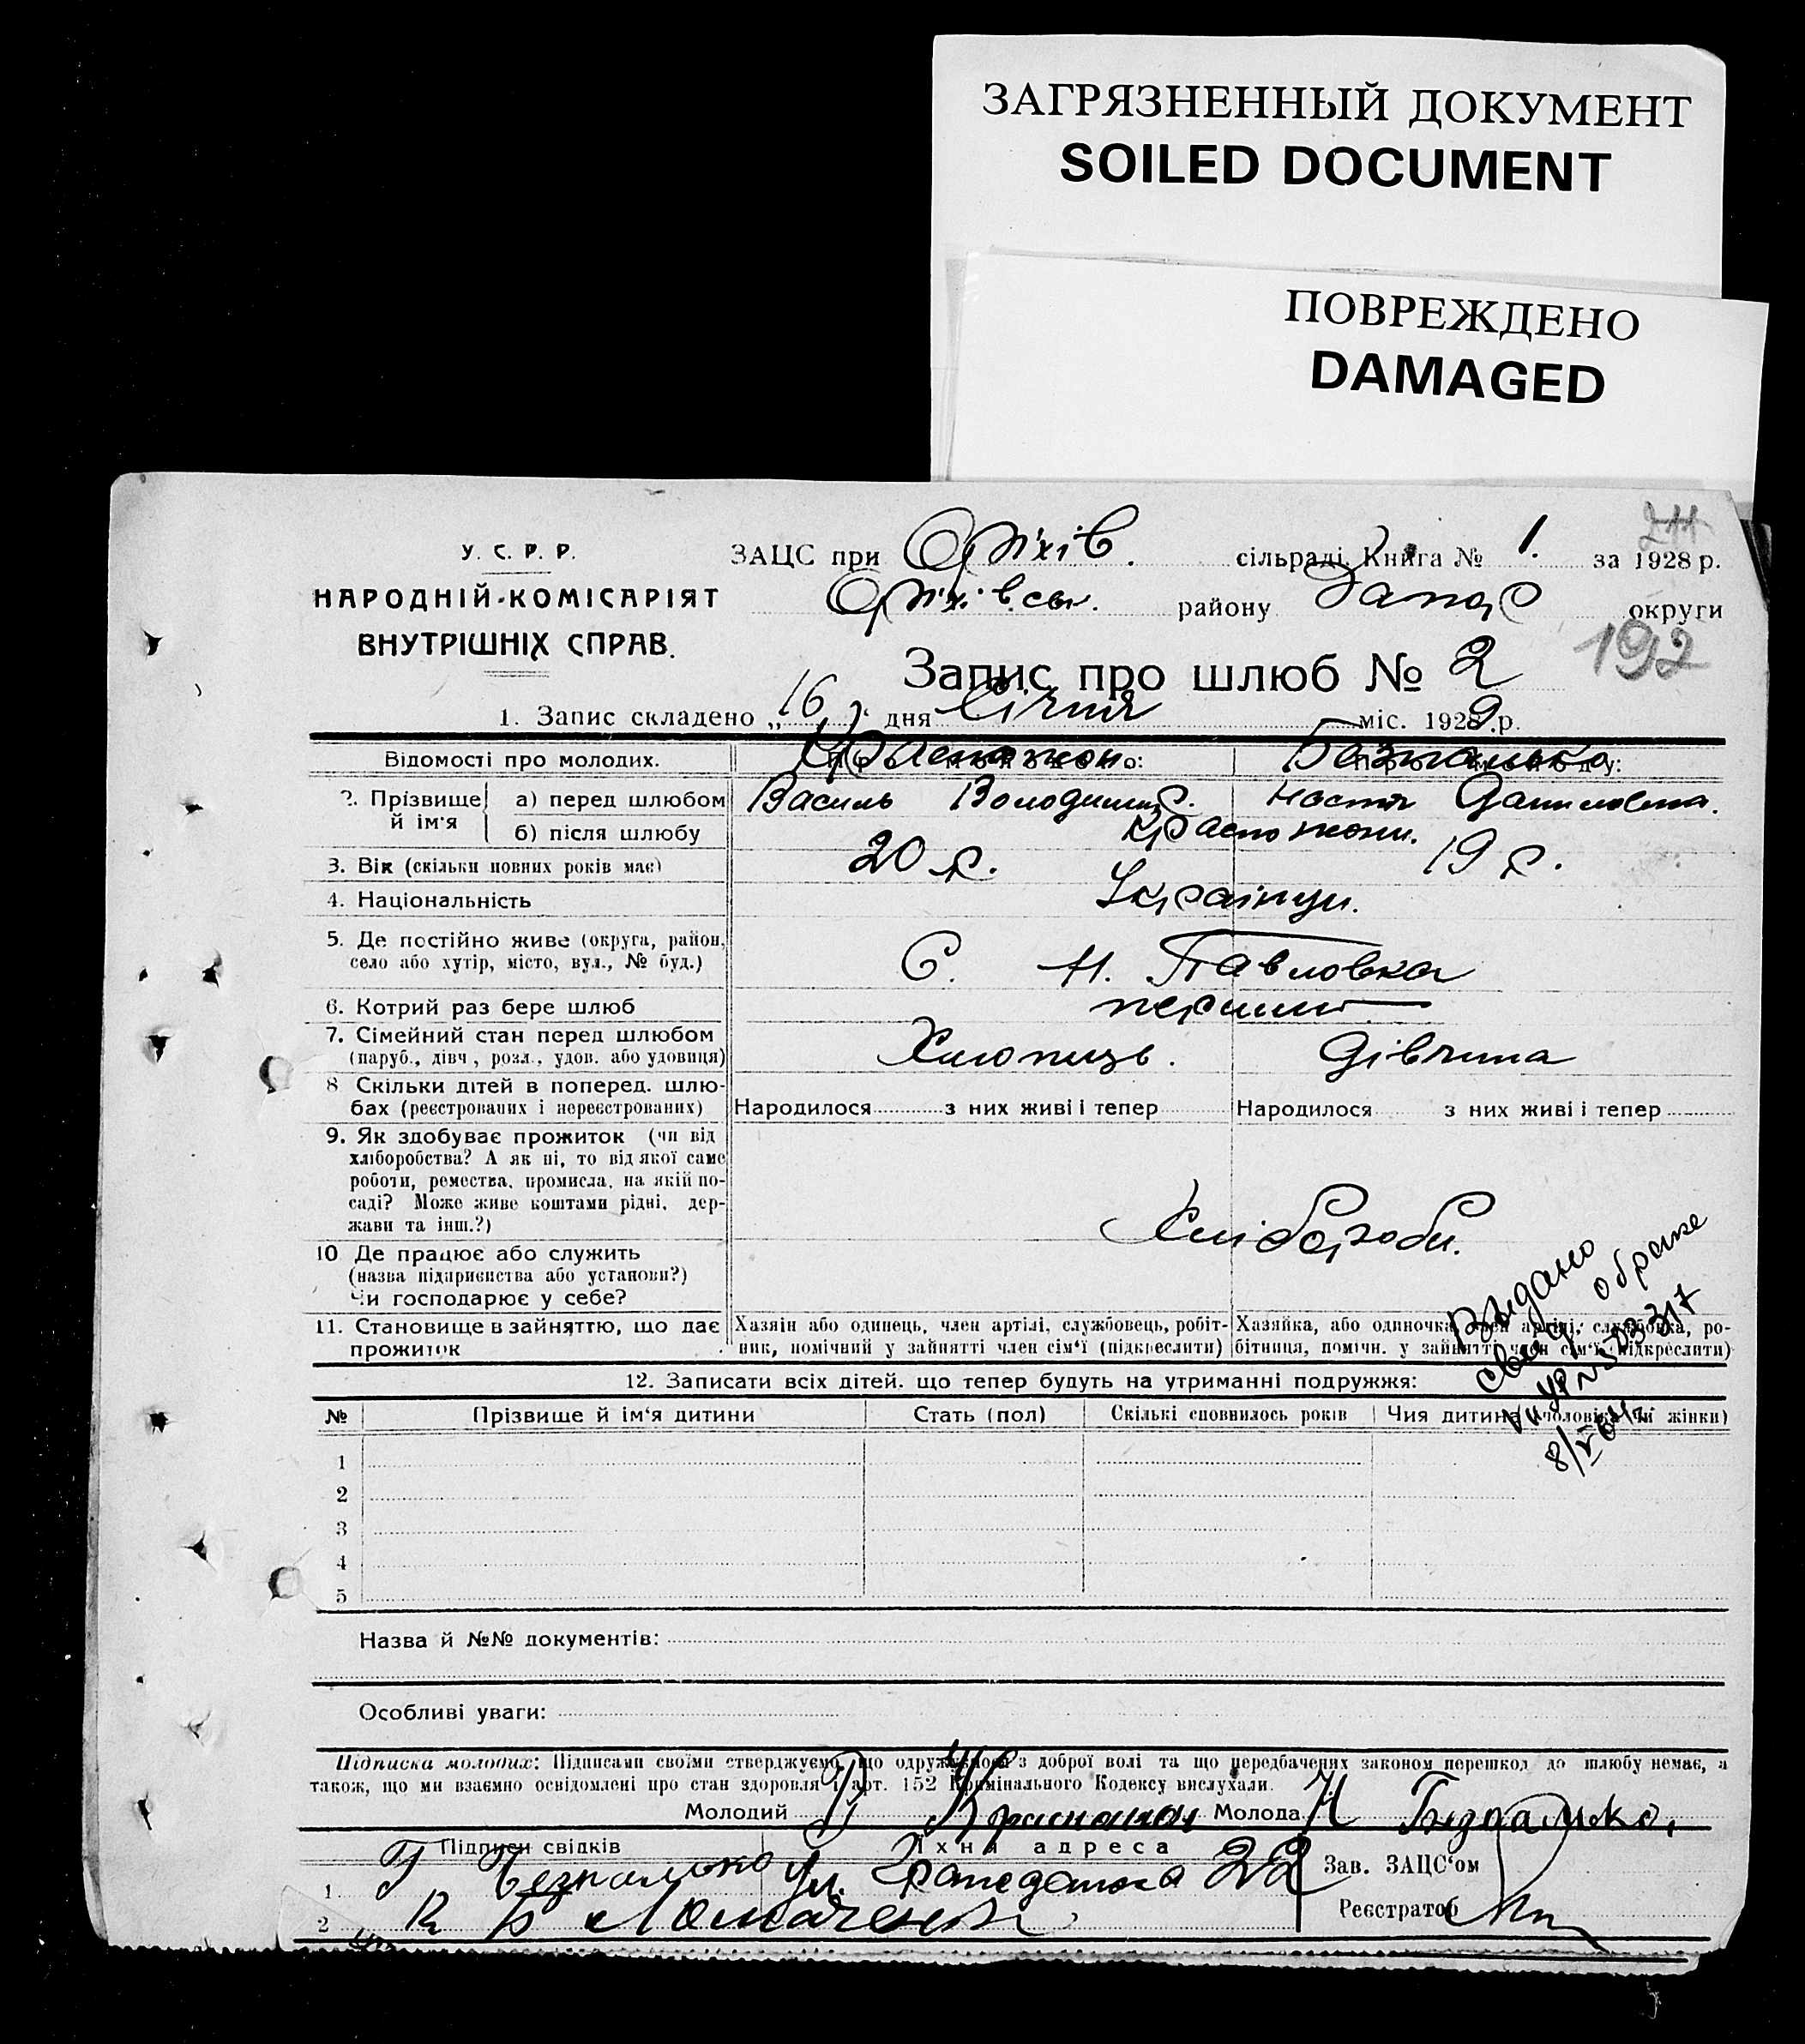 ЗАГРЯЗНЕННЫЙ ДОКУМЕНТ
SOILED DOCUMENT
ПОВРЕЖДЕНО
DAMAGED
211
У. С. Р. Р.
НАРОДНІЙ-КОМІСАРІЯТ
ВНУТРІШНІХ СПРАВ.
ЗАЦС при Оріхів. сільраді. Книга № 1. за 1928 р.
Оріхівськ. району Запор округи
192
Запис про шлюб № 2
1. Запис складено „16" дня Січня міс. 1929 р.
Відомості про молодих.
Красножон
Безпалько
2. Прізвище й ім'я
а) перед шлюбом Василь Володимир. Настя Даниловна.
б) після шлюбу Красножони.
3. Вік (скільки повних років має) 20 р. 19 р.
4. Національність Українци.
5. Де постійно живе (округа, район, С. Н. Павловка
село або хутір, місто, вул., № буд.)
6. Котрий раз бере шлюб перший
7. Сімейний стан перед шлюбом Хлопиць. Дівчина
(паруб., дівч., розл., удов. або удовиця)
8 Скільки дітей в поперед. шлю-
бах (реєстрованих і нереєстрованих) Народилося з них живі і тепер Народилося з них живі і тепер
9. Як здобуває прожиток (чи від
хліборобства? А як ні, то від якої саме
роботи, ремества, промисла, на якій по-
саді? Може живе коштами рідні, дер-
жави та інш.?)
Хлібороби.
10 Де працює або служить
(назва підприємства або установи?)
Чи господарює у себе?
11. Становище в зайняттю, що дає прожиток
Хазяїн або одинець, член артілі, службовець, робіт-
ник, помічний у зайнятті член сім'ї (підкреслити)
Хазяйка, або одиночка, член артілі, службовка, ро-
бітниця, помічн. у зайнятті член сім'ї (підкреслити)
Выдано
8/V
12. Записати всіх дітей, що тепер будуть на утриманні подружжя:
№ Прізвище й ім'я дитини Стать (пол) Скількі сповнилось років Чия дитина (чоловіка чи жінки)
1
2
3
4
5
Назва й №№ документів:
Особливі уваги:
Підписка молодих: Підписами своїми стверджуємо, що одружуємося з доброї волі та що передбачених законом перешкод до шлюбу немає, а
також, що ми взаємно освідомлені про стан здоровля і арт. 152 Кримінального Кодексу вислухали.
Молодий В Красножон Молода Н Бизпалько.
Підписи свідків Їхня адреса
1 Г Безпалько 22
2
Зав. ЗАЦС'ом
Реєстратор